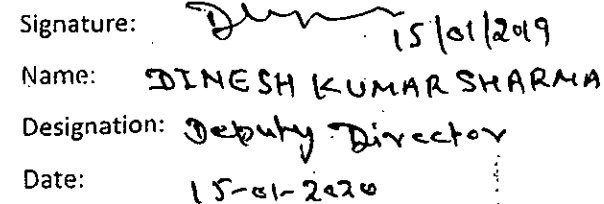 Signature: 15/01/2019
Name: DINESH KUMAR SHARMA
Designation: Deputy Director
Date: 15-01-2020